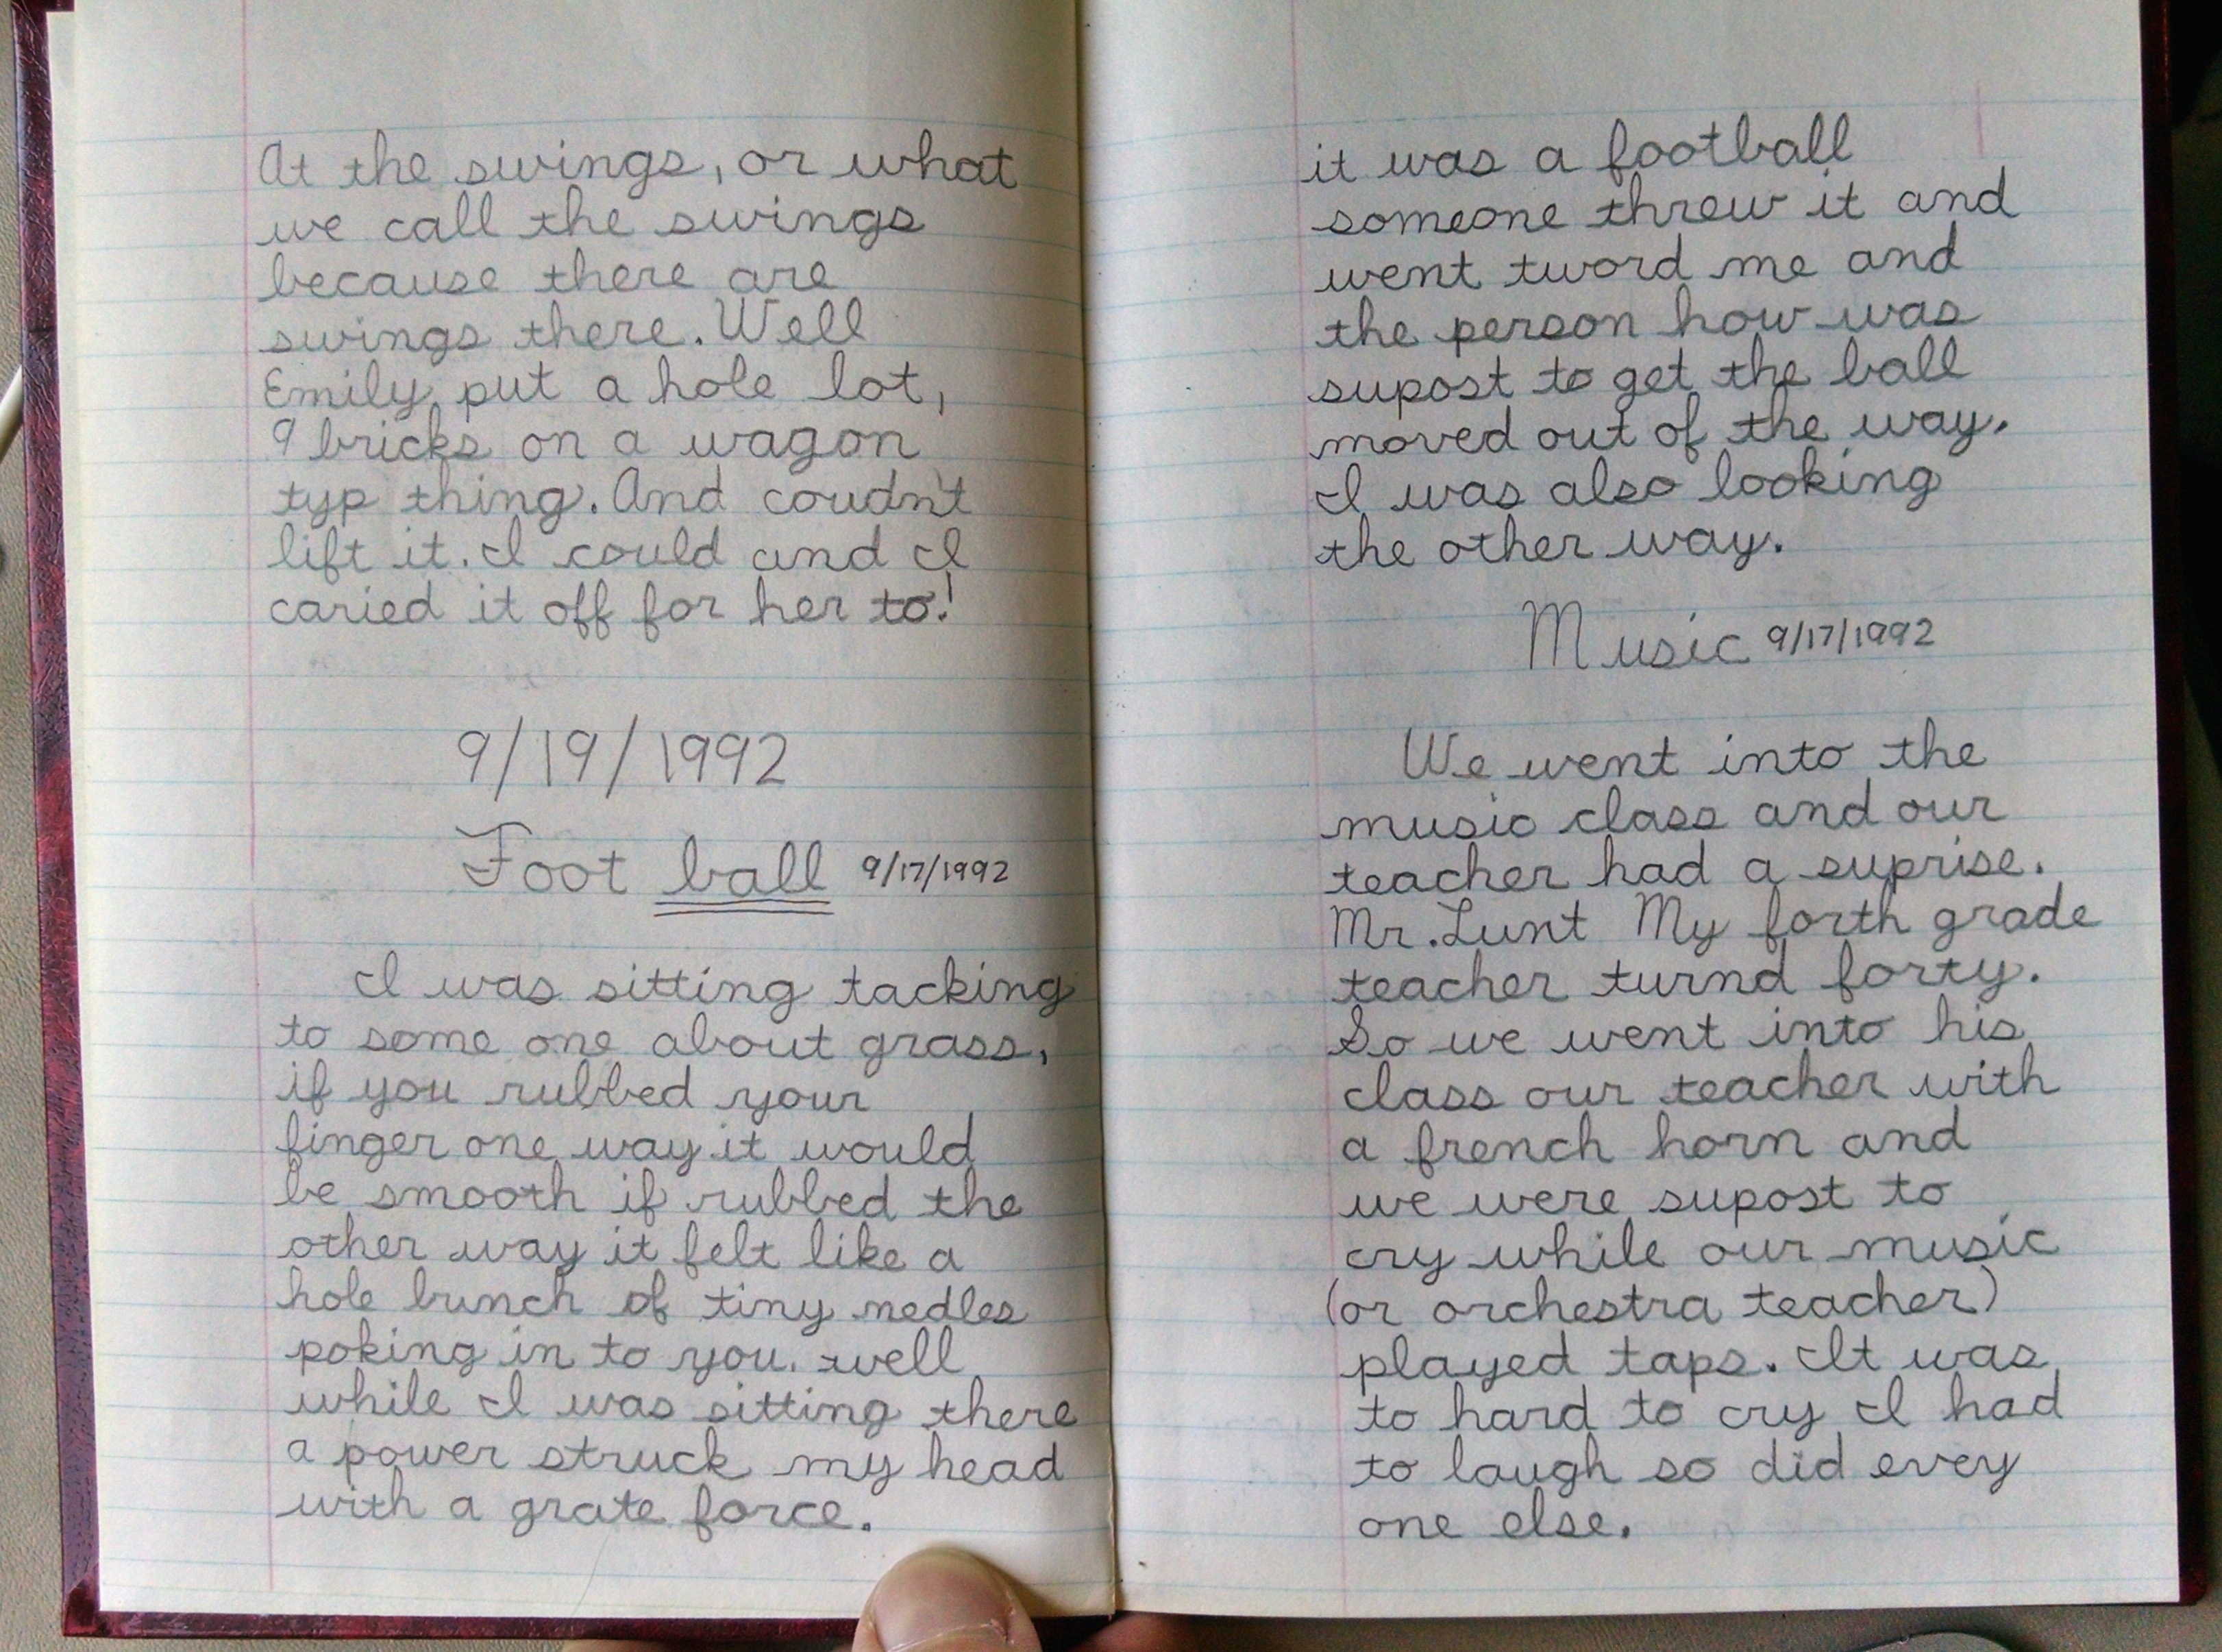 At the swings, or what
we call the swings
because there are
swings there. Well
Emily put a hole lot,
9 bricks on a wagon
typ thing. And coudn't
lift it. I could and I
caried it off for her to!
9/19/1992
Foot ball 9/17/1992
I was sitting tacking
to some one about grass,
if you rubbed your
finger one way it would
be smooth if rubbed the
other way it felt like a
hole bunch of tiny nedles
poking in to you. well
while I was sitting there
a power struck my head
with a grate force.
it was a football
someone threw it and
went tword me and
the person how was
supost to get the ball
moved out of the way.
I was also looking
the other way.
Music 9/17/1992
We went into the
music class and our
teacher had a suprise.
Mr. Lunt My forth grade
teacher turnd forty.
So we went into his
class our teacher with
a french horn and
we were supost to
cry while our music
(or orchestra teacher)
played taps. It was
to hard to cry I had
to laugh so did evey
one else.